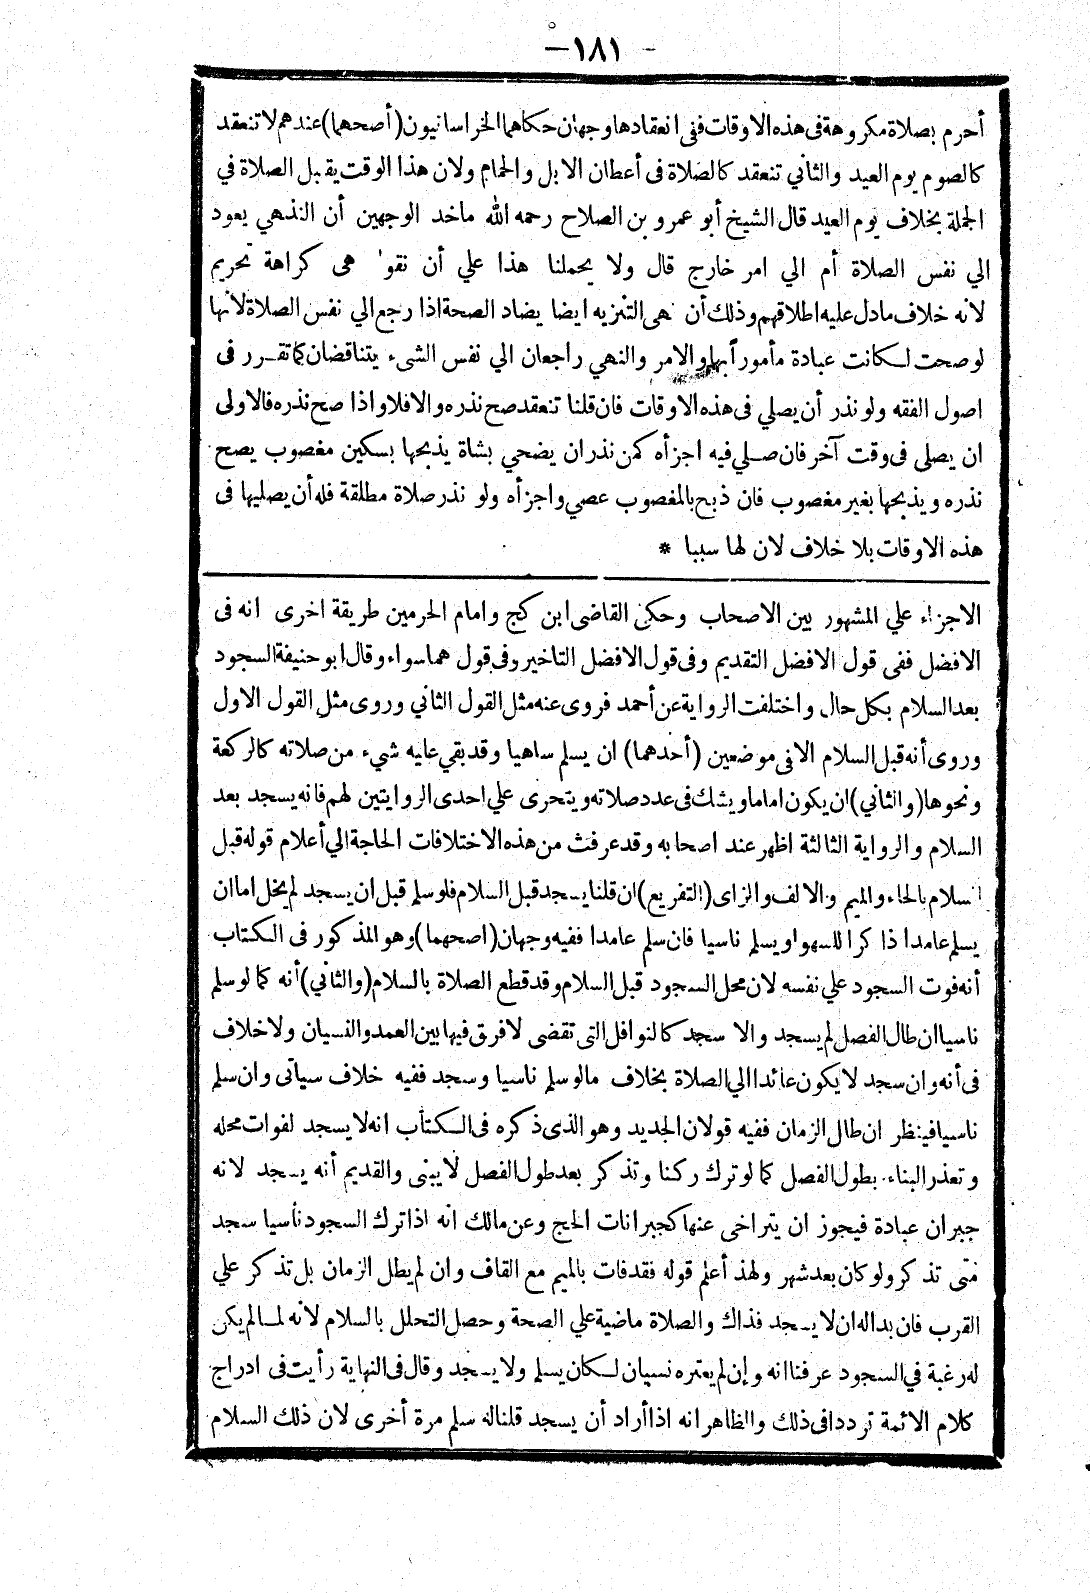 -١٨١-
أحرم بصلاة مكروهة فى هذه الاوقات ففى انعقادها وجهان حكاهما الخراسانيون (أصحهما) عندهم لا تنعقد
كالصوم يوم العيد والثاني تنعقد كالصلاة فى أعطان الابل والحمام ولان هذا الوقت يقبل الصلاة في
الجملة بخلاف يوم العيد قال الشيخ أبو عمرو بن الصلاح رحمه الله ماخد الوجهين أن النهي يعود
الي نفس الصلاة أم الي امر خارج قال ولا يحملنا هذا علي أن نقو' هى كراهة تحريم
لانه خلاف مادل عليه اطلاقهم وذلك أن نهى التنزيه ايضا يضاد الصحة اذا رجع الي نفس الصلاة لانها
لو صحت لكانت عبادة مأموراً بها والامر والنهي راجعان الي نفس الشىء يتناقضان كما تقرر فى
اصول الفقه ولو نذر أن يصلي فى هذه الاوقات فان قلنا تنعقد صح نذره والا فلا واذا صح نذره فالاولى
ان يصلى فى وقت آخر فان صلي فيه اجزأه كمن نذر ان يضحي بشاة يذبحها بسكين مغصوب يصح
نذره ويذبحها بغير مغصوب فان ذبح بالمغصوب عصي واجزأه ولو نذر صلاة مطلقة فله أن يصليها فى
هذه الاوقات بلا خلاف لان لها سببا *
الاجزاء علي المشهور بين الاصحاب وحكى القاضى ابن كج وامام الحرمين طريقة اخرى انه فى
الافضل ففى قول الافضل التقديم وفى قول الافضل التاخير وفى قول هما سواء وقال ابو حنيفة السجود
بعد السلام بكل حال واختلفت الرواية عن أحمد فروى عنه مثل القول الثاني وروى مثل القول الاول
وروى أنه قبل السلام الا فى موضعين (أحدهما) ان يسلم ساهيا وقد بقي عليه شيء من صلاته كالركعة
ونحوها (والثاني) ان يكون اماما ويشك فى عدد صلاته ويتحرى علي احدى الروايتين لهم فانه يسجد بعد
السلام والرواية الثالثة اظهر عند اصحابه وقد عرفت من هذه الاختلافات الحاجة الي أعلام قوله قبل
السلام بالحاء والميم والالف والزاى (التفريع) ان قلنا يسجد قبل السلام فلو سلم قبل ان يسجد لم يخل اما ان
يسلم عامدا ذاكرا للسهو او يسلم ناسيا فان سلم عامدا ففيه وجهان (اصحهما) وهو المذكور فى الكتاب
أنه فوت السجود علي نفسه لان محل السجود قبل السلام وقد قطع الصلاة بالسلام (والثاني) أنه كما لو سلم
ناسيا ان طال الفصل لم يسجد والا سجد كالنوافل التى تقضى لا فرق فيها بين العمد والنسيان ولا خلاف
فى أنه وان سجد لا يكون عائدا الي الصلاة بخلاف مالو سلم ناسيا وسجد ففيه خلاف سياتى وان سلم
ناسيا فينظر ان طال الزمان ففيه قولان الجديد وهو الذى ذكره فى الكتاب انه لا يسجد لفوات محله
وتعذر البناء بطول الفصل كما لو ترك ركنا وتذكر بعد طول الفصل لا يبنى والقديم أنه يسجد لانه
جبران عبادة فيجوز ان يتراخى عنها كجبرانات الحج وعن مالك انه اذا ترك السجود ناسيا سجد
متى تذكر ولو كان بعد شهر ولهذ أعلم قوله فقد فات بالميم مع القاف وان لم يطل الزمان بل تذكر علي
القرب فان بداله ان لا يسجد فذاك والصلاة ماضية علي الصحة وحصل التحلل بالسلام لانه لما لم يكن
له رغبة في السجود عرفنا انه وإن لم يعتره نسيان لكان يسلم ولا يسجد وقال فى النهاية رأيت فى ادراج
كلام الائمة ترددا فى ذلك والظاهر انه اذا أراد أن يسجد قلنا له سلم مرة أخرى لان ذلك السلام